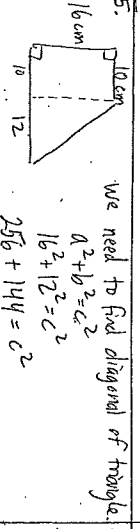 5.
10 cm
16 cm
10
12
We need to find diagonal of triangle.
a²+b²=c²
16²+12²=c²
256+144=c²